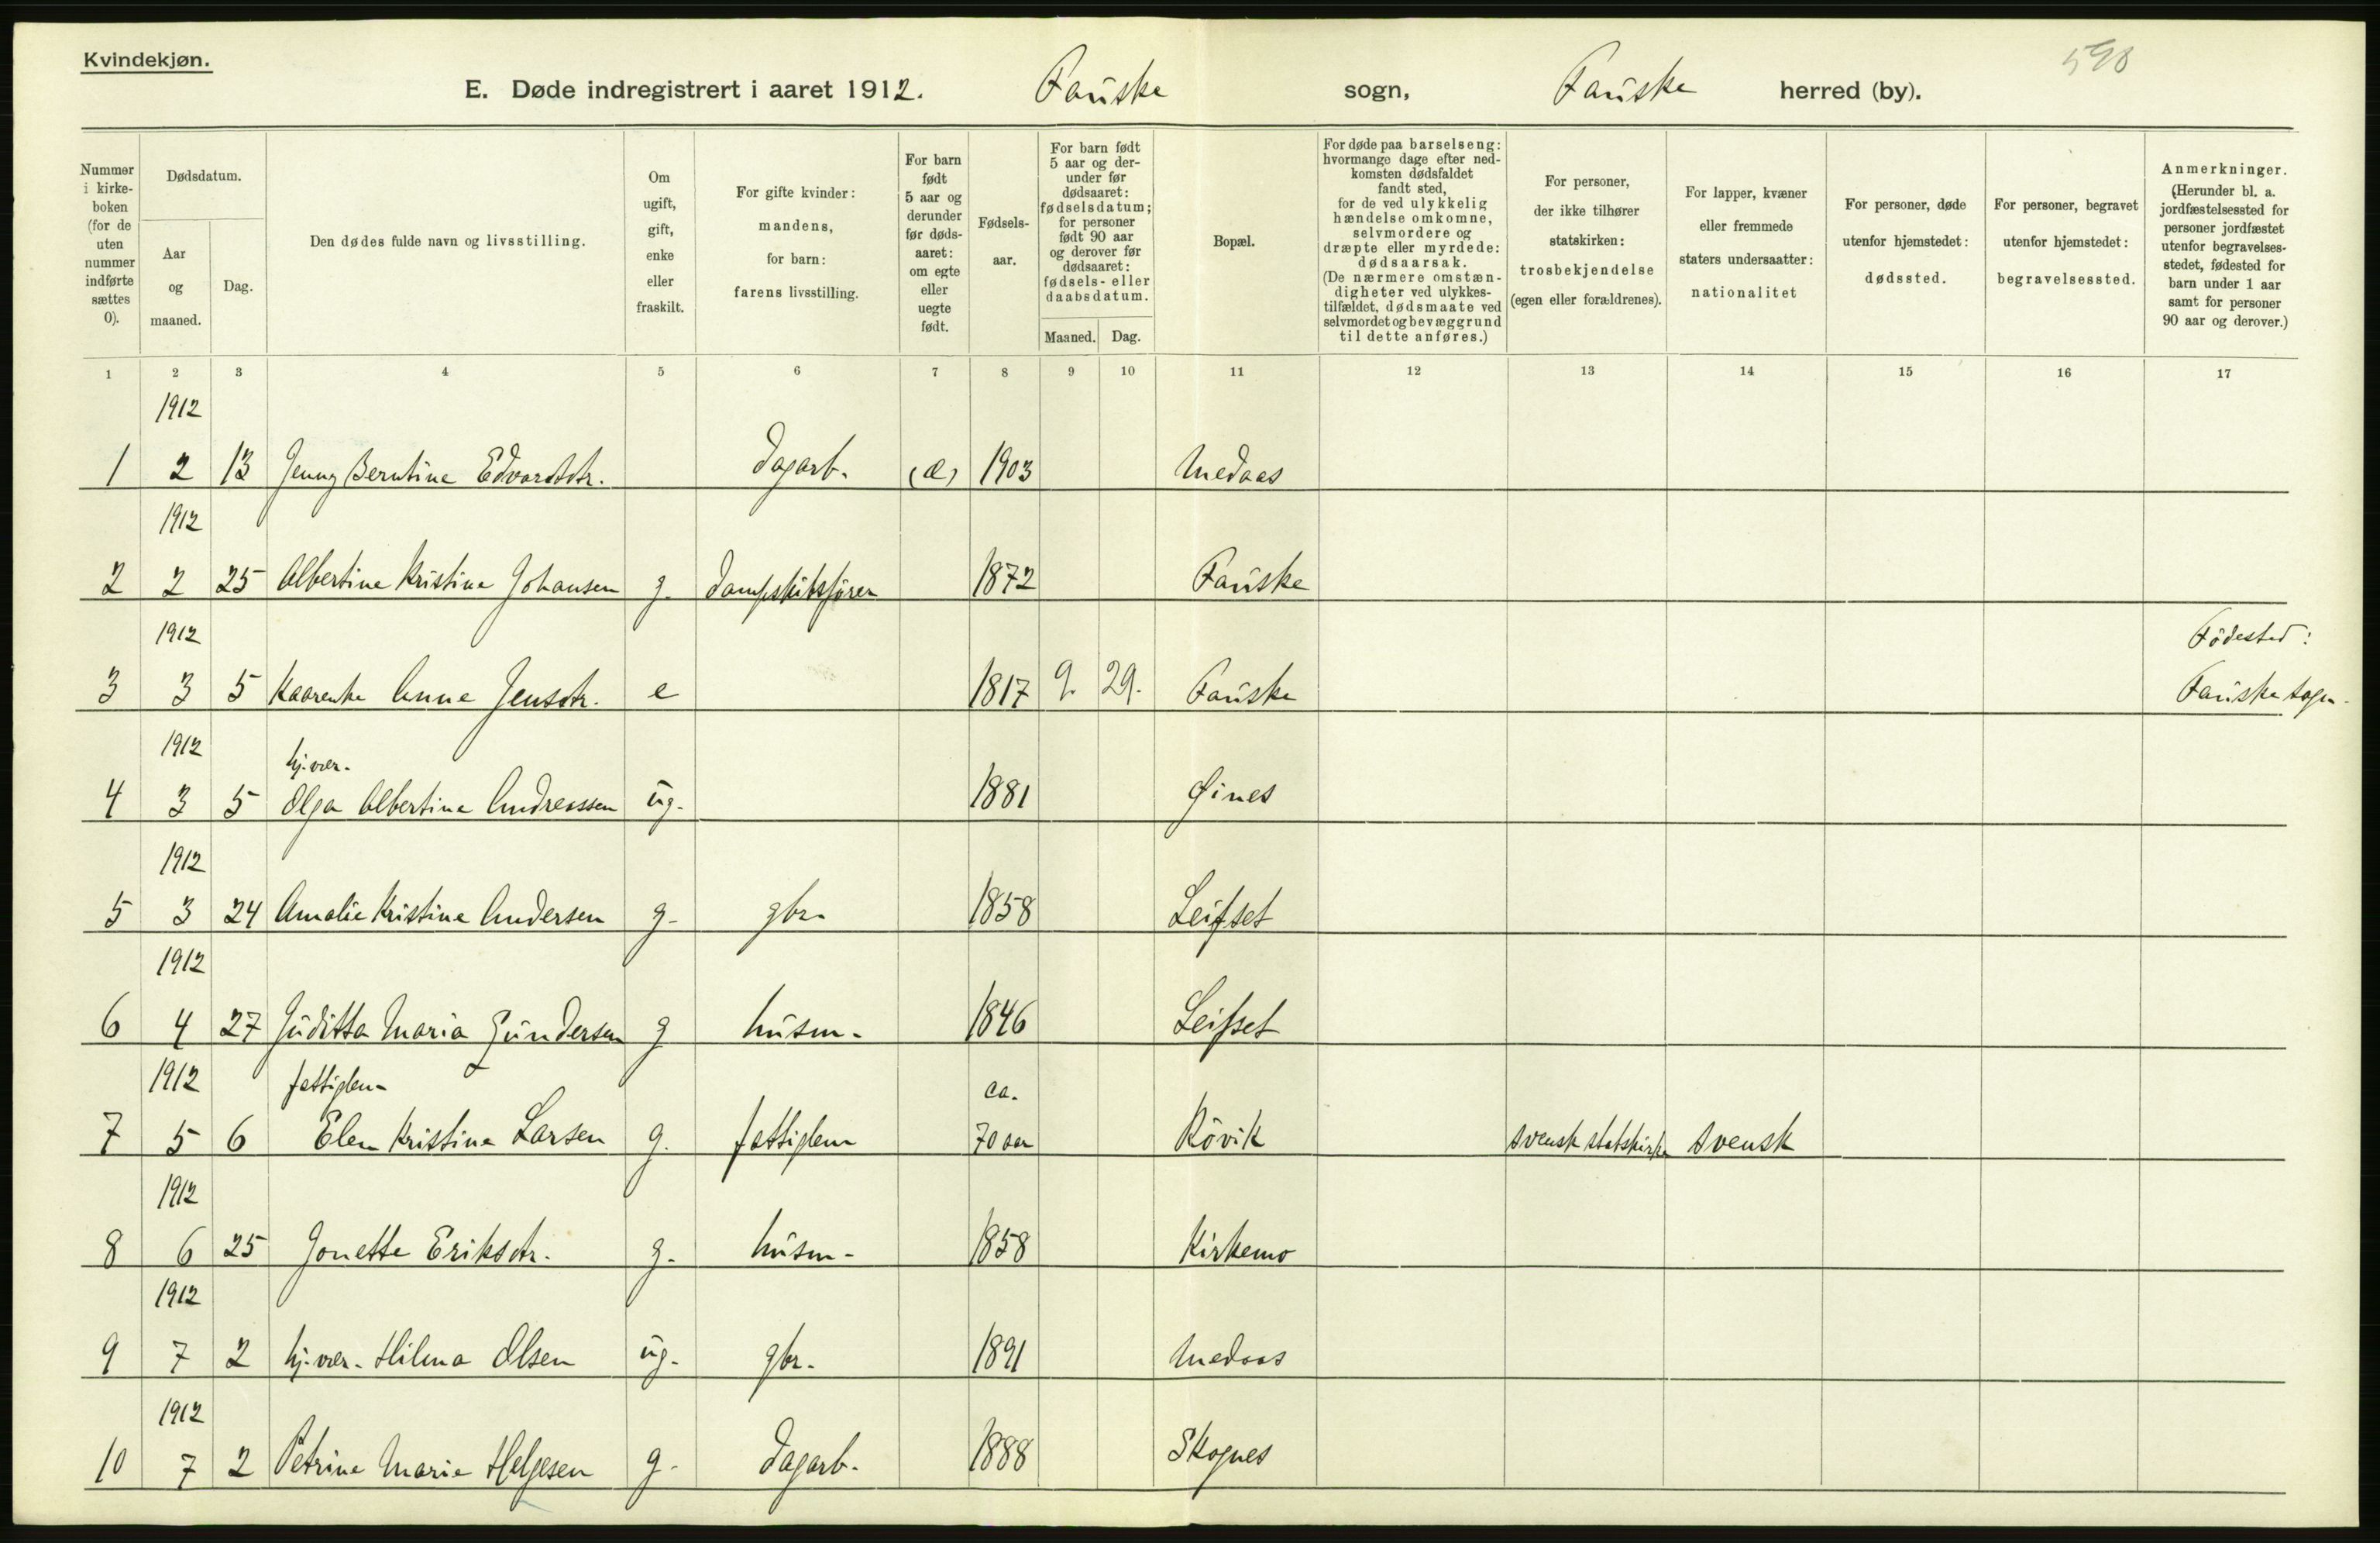 Kvindekjøn.
590
E. Døde indregistrert i aaret 1912. Fauske sogn, Fauske herred (by).
Nummer i kirkeboken (for de uten nummer indførte sættes 0).
Dødsdatum.
Aar og maaned.
Dag.
Den dødes fulde navn og livsstilling.
Om ugift, gift, enke eller fraskilt.
For gifte kvinder: mandens, for barn: farens livsstilling.
For barn født 5 aar og derunder før dødsaaret: om egte eller uegte født.
Fødselsaar.
For barn født 5 aar og derunder før dødsaaret: fødselsdatum; for personer født 90 aar og derover før dødsaaret: fødsels- eller daabsdatum.
Maaned.
Dag.
Bopæl.
For døde paa barselseng: hvormange dage efter nedkomsten dødsfaldet fandt sted, for de ved ulykkelig hændelse omkomne, selvmordere og dræpte eller myrdede: dødsaarsak. (De nærmere omstændigheter ved ulykkestilfældet, dødsmaate ved selvmordet og bevæggrund til dette anføres.)
For personer, der ikke tilhører statskirken: trosbekjendelse (egen eller forældrenes).
For lapper, kvæner eller fremmede staters undersaatter: nationalitet
For personer, døde utenfor hjemstedet: dødssted.
For personer, begravet utenfor hjemstedet: begravelsessted.
Anmerkninger. (Herunder bl. a. jordfæstelsessted for personer jordfæstet utenfor begravelsesstedet, fødested for barn under 1 aar samt for personer 90 aar og derover.)
1 2 3 4 5 6 7 8 9 10 11 12 13 14 15 16 17
1912
1 2 13 Jenny Berntine Edvardsdtr. dagarb. (æ) 1903 Medaas
1912
2 2 25 Albertine Kristine Johansen g. dampskibsfører 1872 Fauske
1912 Födested:
3 3 5 Kaarenke Anne Jensdtr. e 1817 9. 29. Fauske Fauske sogn.
1912 hj.vær.
4 3 5 Olga Albertine Andreassen ug. 1881 Øines
1912
5 3 24 Amalie Kristine Andersen g. gbr. 1858 Leifset
1912
6 4 27 Juditta Maria Gundersen g husm. 1846 Leifset
1912 fattiglem ca.
7 5 6 Elen Kristine Larsen g. fattiglem 70 aar Rövik svensk statskirke svensk
1912
8 6 25 Jonette Eriksdtr. g. husm. 1858 Kirkemo
1912
9 7 2 hj.vær. Hilma Olsen ug. gbr. 1891 Medaas
1912
10 7 2 Petrine Marie Helgesen g. dagarb. 1888 Skognes